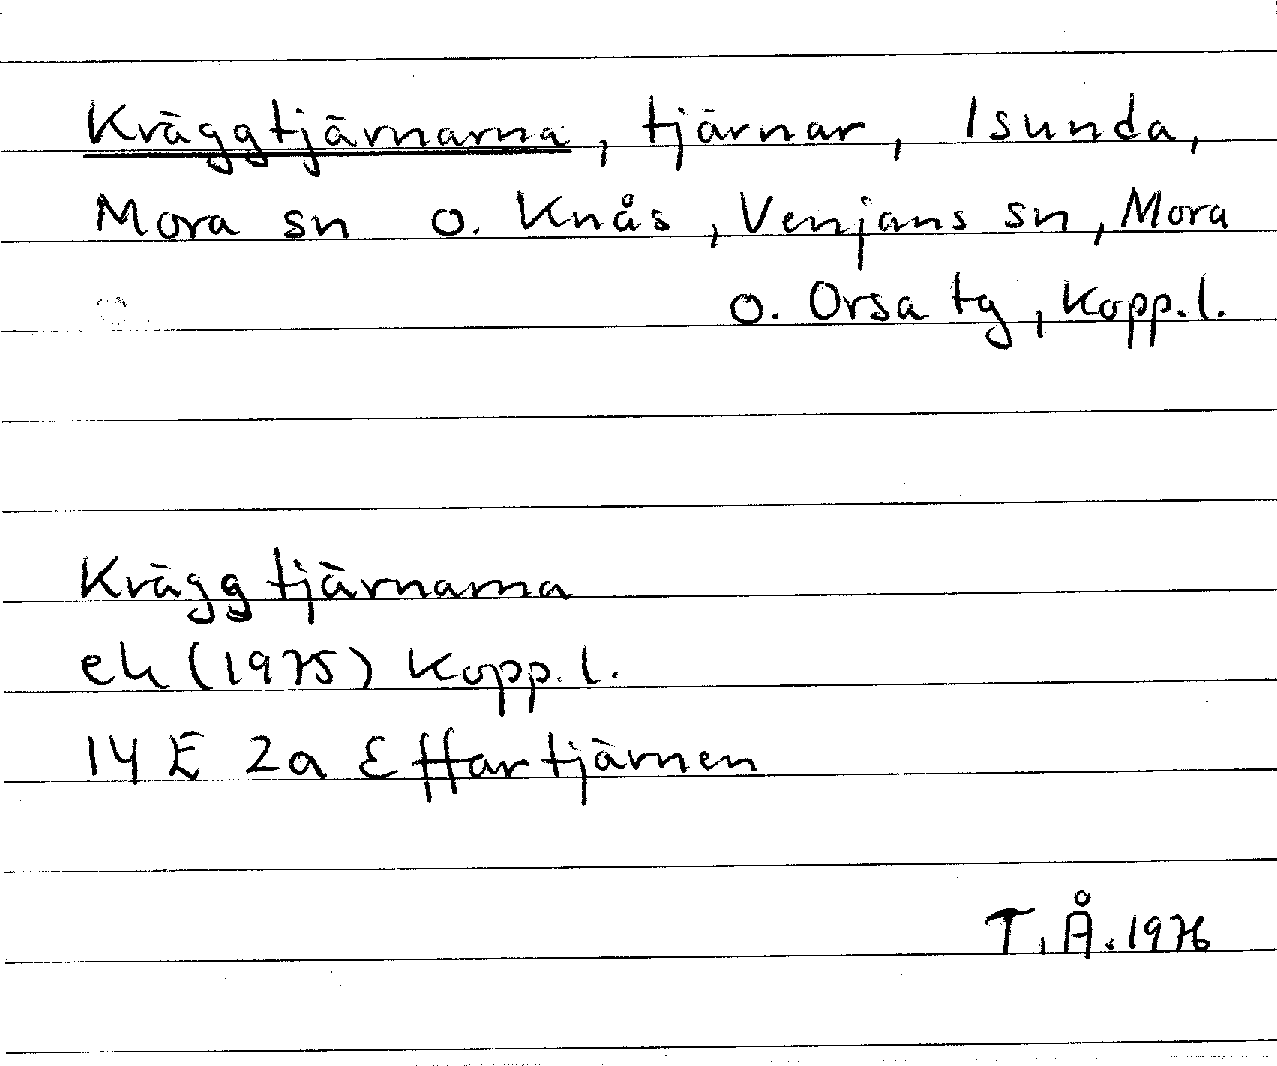 Kräggtjärnarna, tjärnar, Isunda,
Mora sn o. Knås, Venjans sn, Mora
o. Orsa tg, Kopp.l.
Kräggtjärnarna
ek (1975) Kopp.l.
14 E 2a Effartjärnen
T.Å.1976